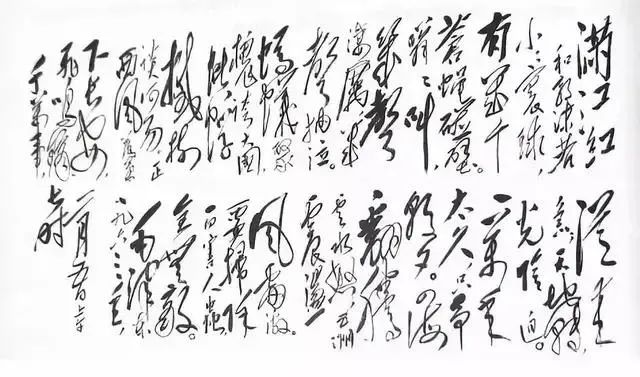 满江红
和郭沫若
小小寰球,
有几个
苍蝇碰壁。
嗡嗡叫,
几声
凄厉,几
声抽泣。
蚂蚁缘
槐夸大国,
蚍蜉
撼树
谈何易。正
西风落叶
下长安,
飞鸣镝
多少事,
从来
急。天地转,
光阴迫。
一万年
太久,只争
朝夕。四海
翻腾
云水怒,五洲
震荡
风雷激。
要扫除
一切害人虫,
全无敌。
毛泽东
一九六三年,
二月五日上午
七时